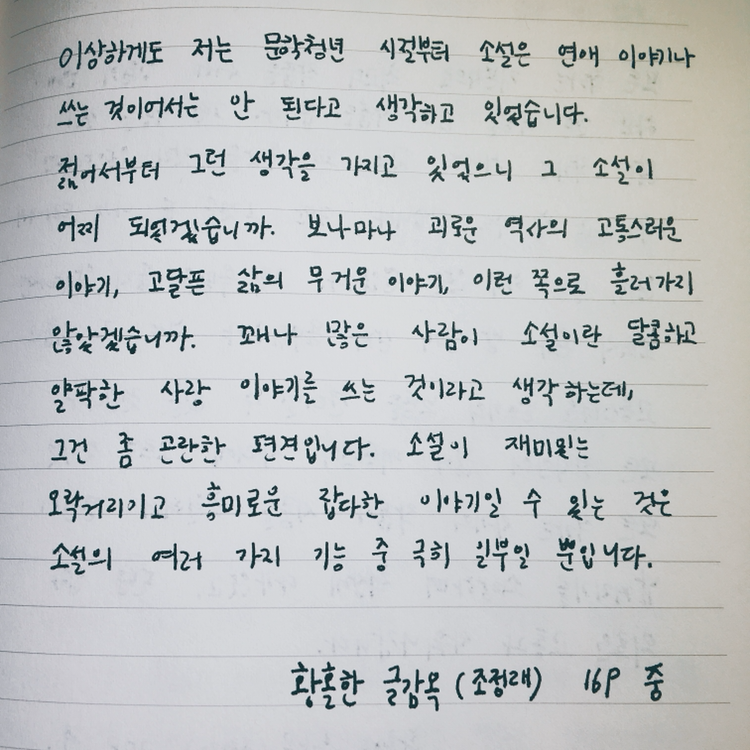 이상하게도 저는 문학청년 시절부터 소설은 연애 이야기나
쓰는 것이어서는 안 된다고 생각하고 있었습니다.
젊어서부터 그런 생각을 가지고 있었으니 그 소설이
어찌 되었겠습니까. 보나마나 괴로운 역사의 고통스러운
이야기, 고달픈 삶의 무거운 이야기, 이런 쪽으로 흘러가지
않았겠습니까. 꽤나 많은 사람이 소설이란 달콤하고
얄팍한 사랑 이야기를 쓰는 것이라고 생각하는데,
그건 좀 곤란한 편견입니다. 소설이 재미있는
오락거리이고 흥미로운 잡다한 이야기일 수 있는 것은
소설의 여러 가지 기능 중 극히 일부일 뿐입니다.
황홀한 글감옥 (조정래) 169p 중